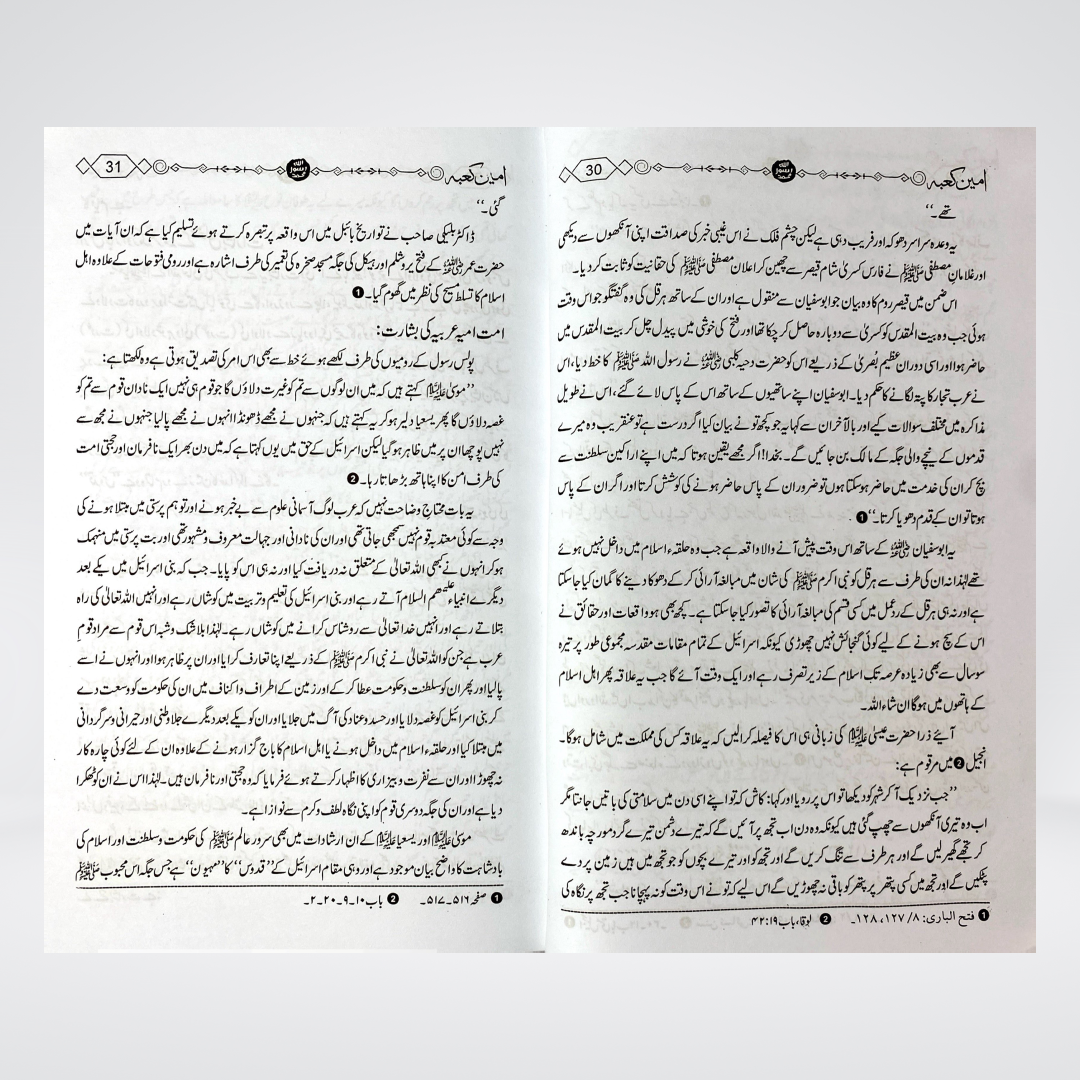 امین کعبہ
30
تھے۔‘‘
یہ وعدہ سراسر دھوکہ اور فریب دہی ہے لیکن چشم فلک نے اس غیبی خبر کی صداقت اپنی آنکھوں سے دیکھی
اور غلامانِ مصطفی ﷺ نے فارس کسریٰ شام قیصر سے چھین کر اعلان مصطفی ﷺ کی حقانیت کو ثابت کر دیا۔
اس ضمن میں قیصر روم کا وہ بیان جو ابوسفیان سے منقول ہے اور ان کے ساتھ ہرقل کی وہ گفتگو جو اس وقت
ہوئی جب وہ بیت المقدس کو کسریٰ سے دوبارہ حاصل کر چکا تھا اور فتح کی خوشی میں پیدل چل کر بیت المقدس میں
حاضر ہوا اور اسی دوران عظیم بصریٰ کے ذریعے اس کو حضرت دحیہ کلبی رضی اللہ عنہ نے رسول اللہ ﷺ کا خط دیا، اس
نے عرب تجار کا پتہ لگانے کا حکم دیا۔ ابوسفیان اپنے ساتھیوں کے ساتھ اس کے پاس لائے گئے، اس نے طویل
مذاکرہ میں مختلف سوالات کیے اور بالآخر ان سے کہا یہ جو کچھ تو نے بیان کیا اگر درست ہے تو عنقریب وہ میرے
قدموں کے نیچے والی جگہ کے مالک بن جائیں گے۔ بخدا! اگر مجھے یقین ہوتا کہ میں اپنے اراکین سلطنت سے
بچ کر ان کی خدمت میں حاضر ہو سکتا ہوں تو ضرور ان کے پاس حاضر ہونے کی کوشش کرتا اور اگر ان کے پاس
ہوتا تو ان کے قدم دھویا کرتا۔‘‘ ❶
یہ ابوسفیان رضی اللہ عنہ کے ساتھ اس وقت پیش آنے والا واقعہ ہے جب وہ حلقہء اسلام میں داخل نہیں ہوئے
تھے لہٰذا نہ ان کی طرف سے ہرقل کو نبی اکرم ﷺ کی شان میں مبالغہ آرائی کر کے دھوکا دینے کا گمان کیا جا سکتا
ہے اور نہ ہی ہرقل کے ردعمل میں کسی قسم کی مبالغہ آرائی کا تصور کیا جا سکتا ہے۔ کچھ بھی ہو واقعات اور حقائق نے
اس کے سچ ہونے کے لیے کوئی گنجائش نہیں چھوڑی کیونکہ اسرائیل کے تمام مقامات مقدسہ مجموعی طور پر تیرہ
سو سال سے بھی زیادہ عرصہ تک اسلام کے زیر تصرف رہے اور ایک وقت آئے گا جب یہ علاقہ پھر اہل اسلام
کے ہاتھوں میں ہوگا ان شاء اللہ۔
آیئے ذرا حضرت عیسیٰ علیہ السلام کی زبانی ہی اس کا فیصلہ کرا لیں کہ یہ علاقہ کس کی مملکت میں شامل ہوگا۔
انجیل ❷ میں مرقوم ہے:
’’جب نزدیک آ کر شہر کو دیکھا تو اس پر رویا اور کہا: کاش کہ تو اپنے اسی دن میں سلامتی کی باتیں جانتا مگر
اب وہ تیری آنکھوں سے چھپ گئی ہیں کیونکہ وہ دن اب تجھ پر آئیں گے کہ تیرے دشمن تیرے گرد مورچہ باندھ
کر تجھے گھیر لیں گے اور ہر طرف سے تنگ کریں گے اور تجھ کو اور تیرے بچوں کو جو تجھ میں ہیں زمین پر دے
پٹکیں گے اور تجھ میں کسی پتھر پر پتھر کو باقی نہ چھوڑیں گے اس لیے کہ تو نے اس وقت کو نہ پہچانا جب تجھ پر نگاہ کی
❶ فتح الباری: ۸/ ۱۲۷، ۱۲۸۔ ❷ لوقا، باب ۱۹: ۴۲
امین کعبہ
31
گئی۔‘‘
ڈاکٹر بلیکی صاحب نے تواریخ بائبل میں اس واقعہ پر تبصرہ کرتے ہوئے تسلیم کیا ہے کہ ان آیات میں
حضرت عمر رضی اللہ عنہ کے فتح یروشلم اور ہیکل کی جگہ مسجد صخرہ کی تعمیر کی طرف اشارہ ہے اور رومی فتوحات کے علاوہ اہل
اسلام کا تسلط مسیح کی نظر میں گھوم گیا۔ ❶
امت امیہ عربیہ کی بشارت:
پولس رسول کے رومیوں کی طرف لکھے ہوئے خط سے بھی اس امر کی تصدیق ہوتی ہے وہ لکھتا ہے:
’’موسیٰ علیہ السلام کہتے ہیں کہ میں ان لوگوں سے تم کو غیرت دلاؤں گا جو قوم ہی نہیں ایک نادان قوم سے تم کو
غصہ دلاؤں گا پھر یسعیا دلیر ہو کر یہ کہتے ہیں کہ جنہوں نے مجھے ڈھونڈا انہوں نے مجھے پا لیا جنہوں نے مجھ سے
نہیں پوچھا ان پر میں ظاہر ہو گیا لیکن اسرائیل کے حق میں یوں کہتا ہے کہ میں دن بھر ایک نافرمان اور حجتی امت
کی طرف امن کا اپنا ہاتھ بڑھاتا رہا۔ ❷
یہ بات محتاج وضاحت نہیں کہ عرب لوگ آسمانی علوم سے بے خبر ہونے اور توہم پرستی میں مبتلا ہونے کی
وجہ سے کوئی معتد بہ قوم نہیں سمجھی جاتی تھی اور ان کی نادانی اور جہالت معروف و مشہور تھی اور بت پرستی میں منہمک
ہو کر انہوں نے کبھی اللہ تعالیٰ کے متعلق نہ دریافت کیا اور نہ ہی اس کو پایا۔ جب کہ بنی اسرائیل میں یکے بعد
دیگرے انبیاء علیہم السلام آتے رہے اور بنی اسرائیل کی تعلیم و تربیت میں کوشاں رہے اور انہیں اللہ تعالیٰ کی راہ
بتلاتے رہے اور انہیں خدا تعالیٰ سے روشناس کرانے میں کوشاں رہے۔ لہٰذا بلا شک و شبہ اس قوم سے مراد قوم
عرب ہے جن کو اللہ تعالیٰ نے نبی اکرم ﷺ کے ذریعے اپنا تعارف کرایا اور ان پر ظاہر ہوا اور انہوں نے اسے
پا لیا اور پھر ان کو سلطنت و حکومت عطا کر کے اور زمین کے اطراف و اکناف میں ان کی حکومت کو وسعت دے
کر بنی اسرائیل کو غصہ دلایا اور حسد و عناد کی آگ میں جلایا اور ان کو یکے بعد دیگرے جلا وطنی اور حیرانی و سرگردانی
میں مبتلا کیا اور حلقہء اسلام میں داخل ہونے یا اہل اسلام کا باج گزار ہونے کے علاوہ ان کے لئے کوئی چارہ کار
نہ چھوڑا اور ان سے نفرت و بیزاری کا اظہار کرتے ہوئے فرمایا کہ وہ حجتی اور نافرمان ہیں۔ لہٰذا اس نے ان کو ٹھکرا
دیا ہے اور ان کی جگہ دوسری قوم کو اپنی نگاہ لطف و کرم سے نوازا ہے۔
موسیٰ علیہ السلام اور یسعیا علیہ السلام کے ان ارشادات میں بھی سرور عالم ﷺ کی حکومت و سلطنت اور اسلام کی
بادشاہت کا واضح بیان موجود ہے اور وہی مقام اسرائیل کے ’’قدوس‘‘ کا ’’صہیون‘‘ ہے جس جگہ اس محبوب ﷺ
❶ صفحہ ۵۱۶۔ ۵۱۷۔ ❷ باب ۱۰۔ ۹۔ ۲۰۔ ۲۔